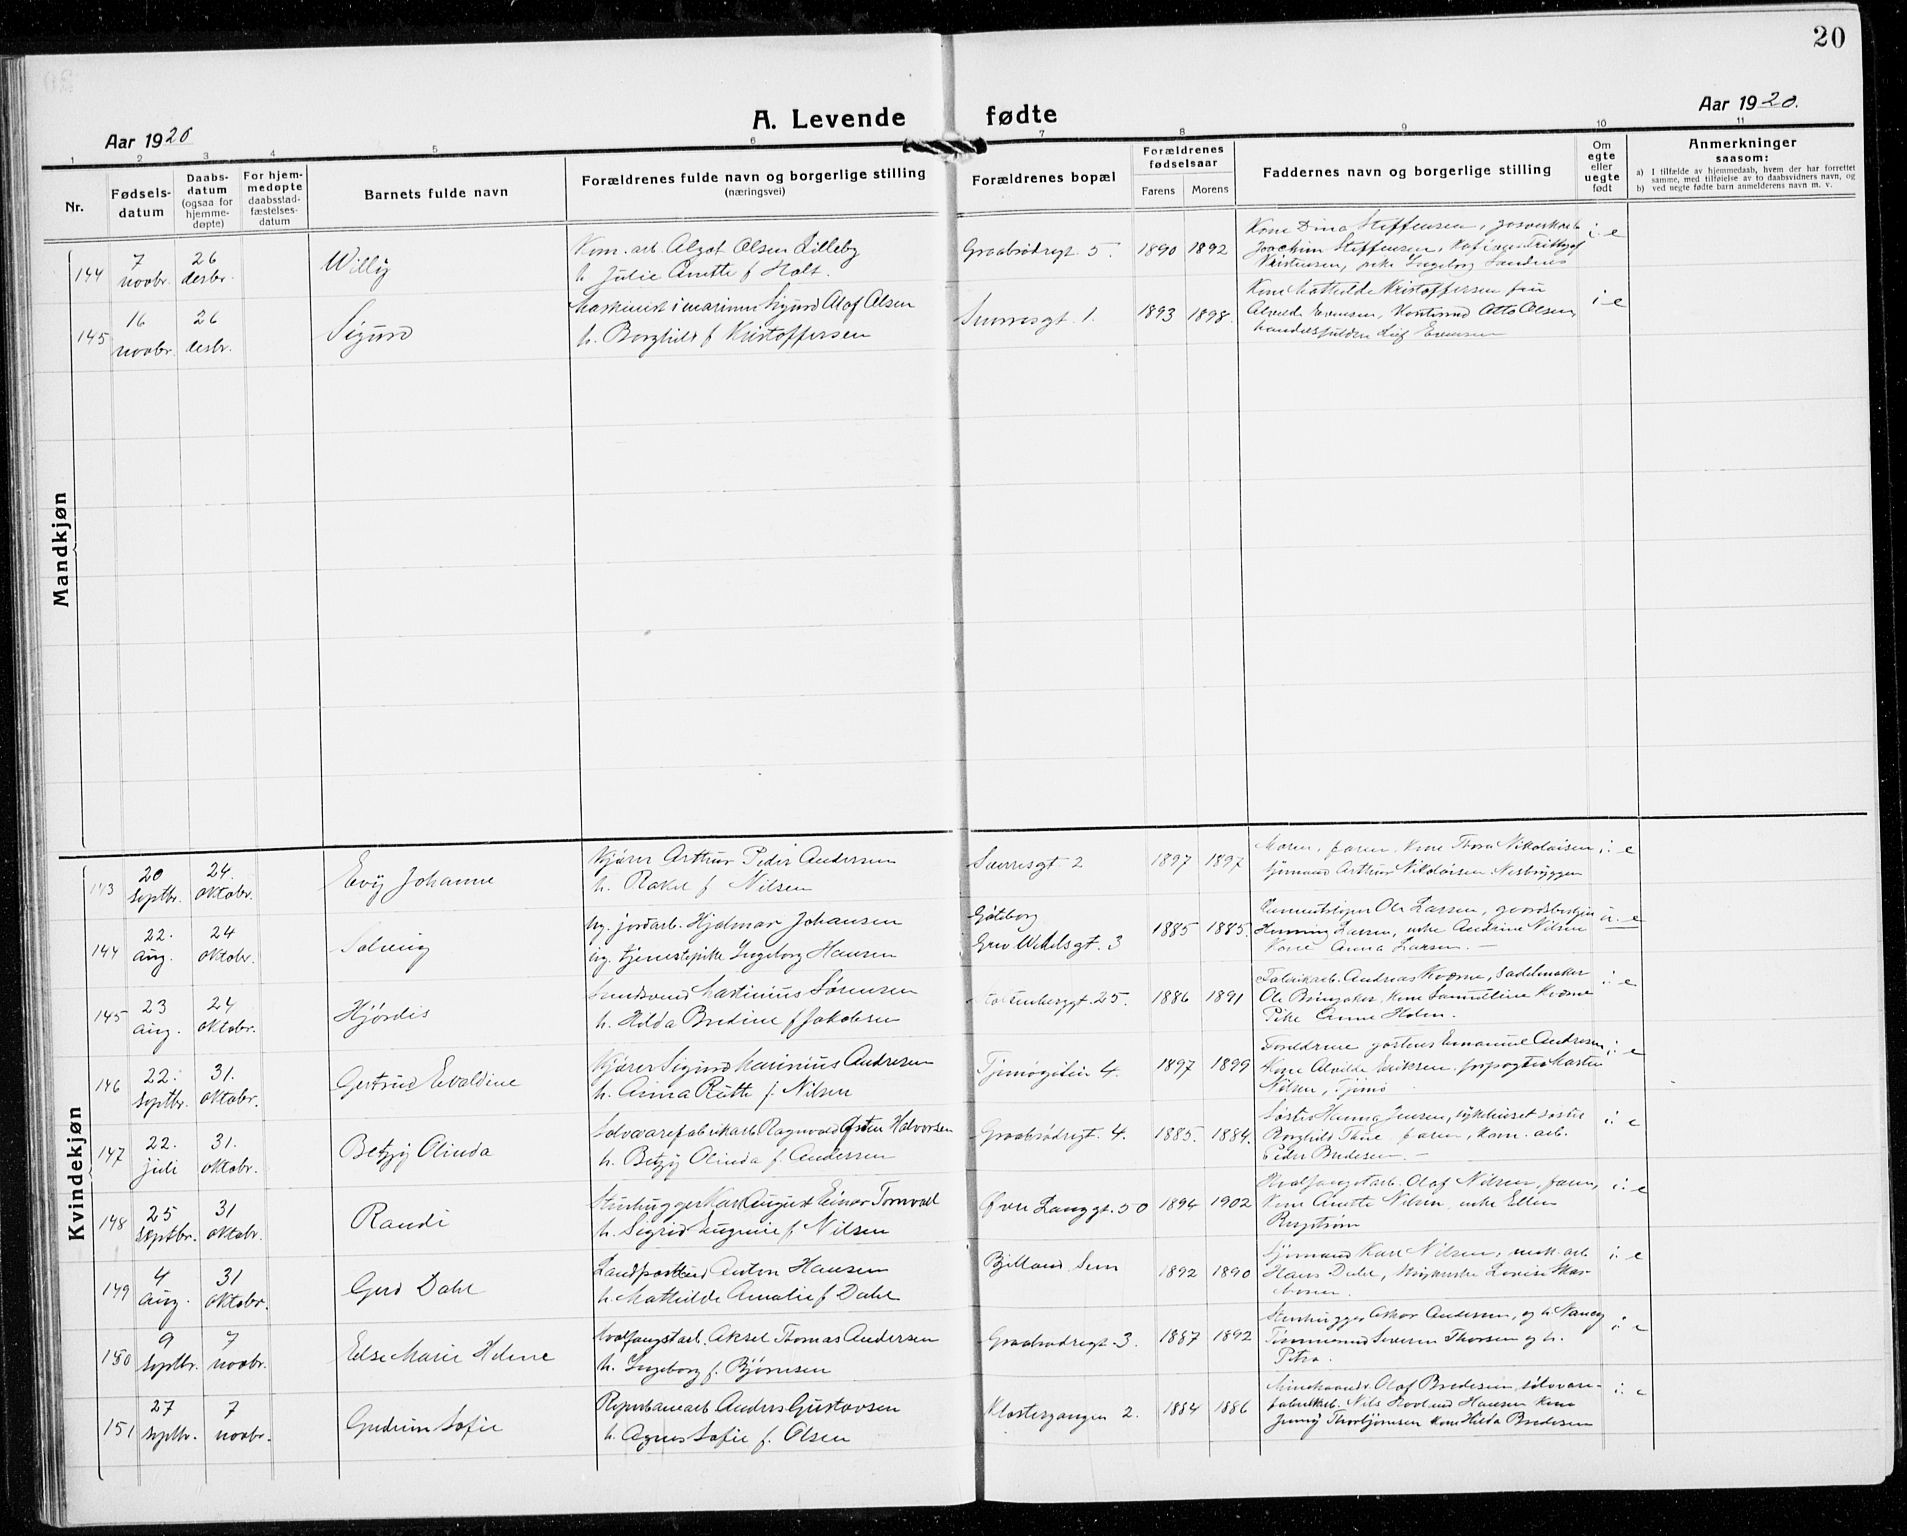 20
Aar 1920
A. Levende fødte
Aar 1920.
1 2 3 4 5 6 7 8 9 10 11
Nr.
Fødsels-
datum
Daabs-
datum
(ogsaa for
hjemme-
døpte)
For hjem-
medøpte
daabsstad-
fæstelses-
datum
Barnets fulde navn
Forældrenes fulde navn og borgerlige stilling
(næringsvei)
Forældrenes bopæl
Forældrenes
fødselsaar
Farens Morens
Faddernes navn og borgerlige stilling
Om
egte
eller
uegte
født
Anmerkninger
saasom:
a) I tilfælde av hjemmedaab, hvem der har forrettet
samme, med tilføielse av to daabsvidners navn, og
b) ved uegte fødte barn anmelderens navn m. v.
Mandkjøn
144 7 novbr. 26 desbr. Willy
Kom. arb. Algot Olsen Lilleby
h. Julie Anette f Holt.
Graabrødregt 5. 1890 1892
Kone Dina Steffensen,
Joachim Steffensen,
Kristensen, pike Ingeborg Sandnes
i. e
145 16 novbr. 26 desbr. Sigurd
Maskinist i marinen Sigurd Olaf Olsen
h. Borghild f Kristoffersen
Snorresgt. 1. 1893 1898.
Kone Mathilde Kristoffersen fru
Alvilde Evensen, Kontorist Otto Olsen,
Leif Evensen
i. e
Kvindekjøn
143 20 septbr. 24. oktobr. Evy Johanne
Kjører Arthur Peder Andersen
h. Rakel f Nilsen
Sverresgt. 2 1897 1897
Moren, faren, Kone Thora Nikolaisen
sjømand Arthur Nikolaisen Nesbryggen
i. e
144 22. aug. 24 oktobr. Solveig
Ug. jordarb. Hjalmar Johansen
ug. tjenestepike Ingeborg Hansen
Gøteborg
Grev Wedelsgt. 3 1885 1885.
Ole Larsen,
Henning Larsen, enke Andrine Nilsen
Kone Anna Larsen. —
u. e
145 23 aug. 24 oktobr. Hjørdis
Martinius Sørensen
h. Hilda Bredine f Jakobsen
Stoltenbergt. 25. 1886 1891
Fabrikarb. Andreas Kværne, Sadelmaker
Ole Kone Samueline Kværne
Pike Anne Holm.
i. e
146 22. septbr. 31. oktobr. Gertrud Evaldine
Kjører Sigurd Marinius Andresen
h. Anna Ruth f. Nilsen
Tjømøgaten 4. 1897 1899
Forældrene, Emanuel Andresen,
Kone Alvilde Eriksen, Martin
Nilsen, Tjømø
i. e
147 22. juli 31. oktobr. Betzy Olinda
Sølvvarefabrikarb. Ragnvald Østen Halvorsen
h. Betzy Olinda f. Andersen
Graabrødregt. 4. 1885. 1884.
Søster Hanna Jensen, sykehuset søster
Borghild Thue, faren, kom. arb.
Peder Bredesen. —
i. e
148 25 septbr. 31 oktobr. Randi
Stenhugger Karl August Einar Tornvall
h. Sigrid Eugenie f Nilsen
Øvre Langgt. 50 1894 1902
Hvalfangstarb. Olaf Nilsen, faren,
Kone Anette Nilsen, enke Ellen
Bergstrøm
i. e
149 4 aug. 31 oktobr. Gerd Dahl
Landpostbud Anton Hansen
h. Mathilde Amalie f Dahl
Bjelland, Sem 1892 1890
Sjømand Karl Nilsen, mek. arb.
Hans Dahl, Lovise
i. e
150 9 septbr. 7 novbr. Else Marie Helene
Hvalfangstarb. Aksel Thomas Andersen
h. Ingeborg f. Bjørnsen
Graabrødregt. 3. 1887 1892
Stenhugger Oskar Andersen, og h. Nancy
Tømmermd Severin Thorsen og h.
Petra.
i. e
151 27 septbr. 7 novbr. Gudrun Sofie
Reperbanearb. Anders Gustavsen
h. Agnes Sofie f. Olsen
Klostergangen 2. 1884 1886
Olaf Bredesen, sølvvare-
fabrikarb. Nils Hansen Kone
Jenny Thorbjørnsen Kone Hilda Bredesen
i. e